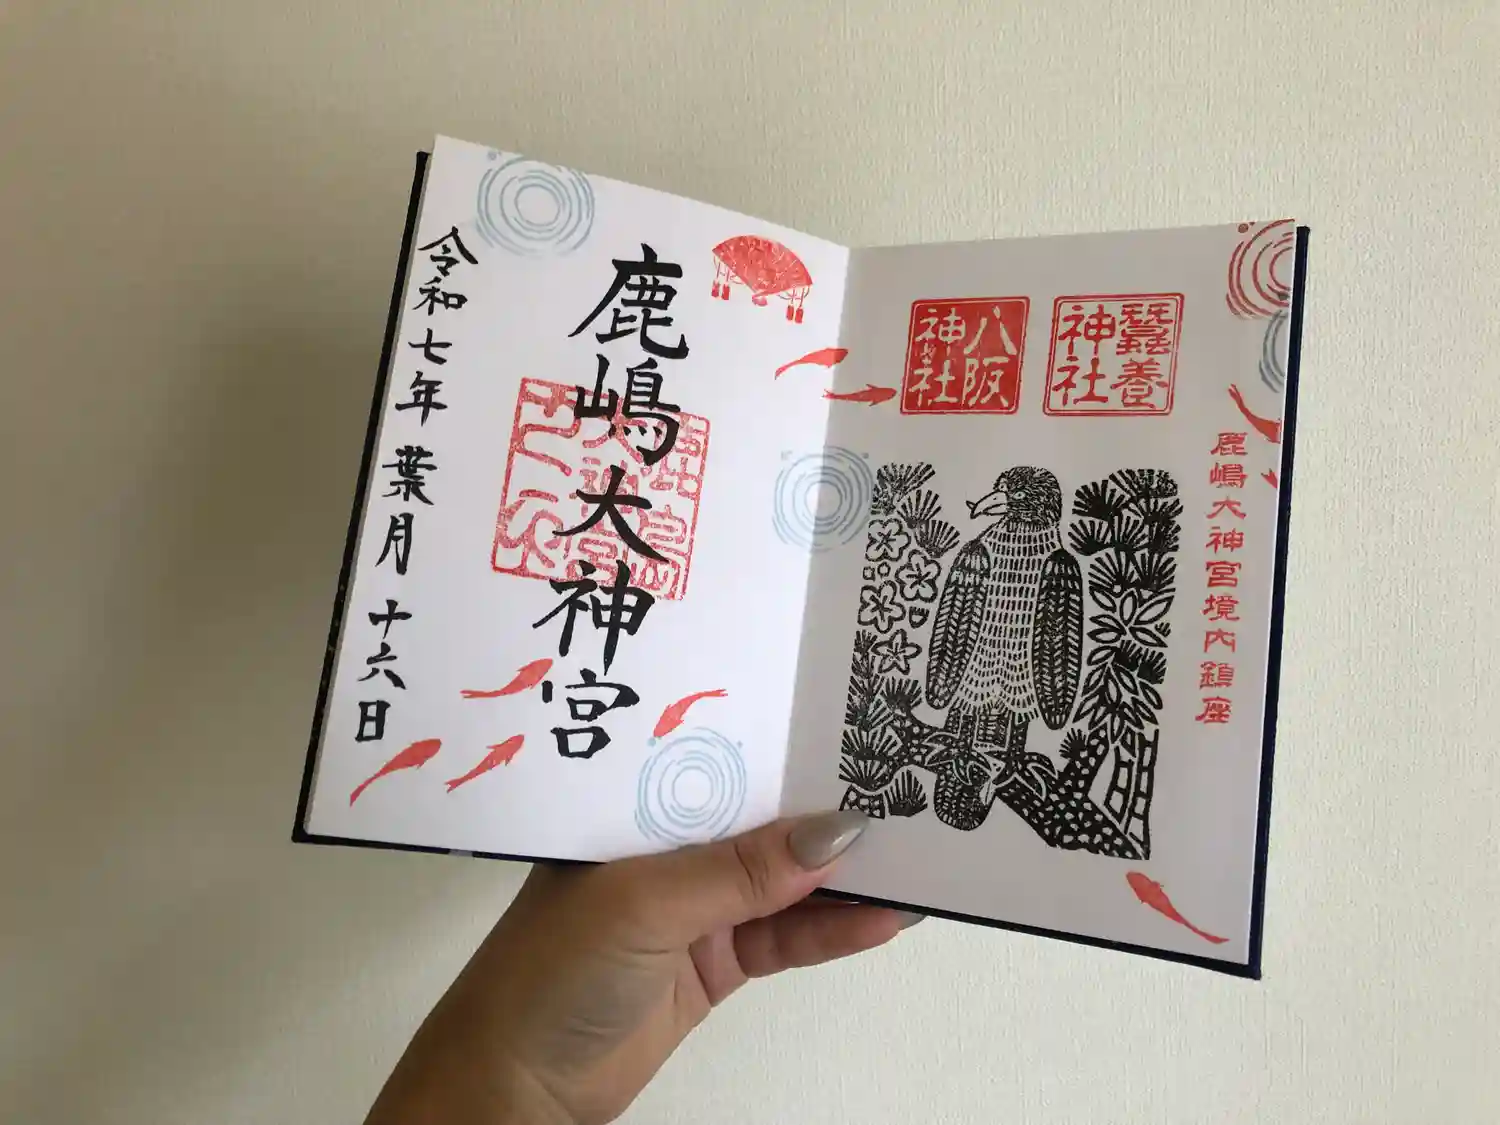 鹿嶋大神宮境内鎮座
蠶養
神社
八阪
神社
鹿嶋大神宮
令和七年葉月十六日